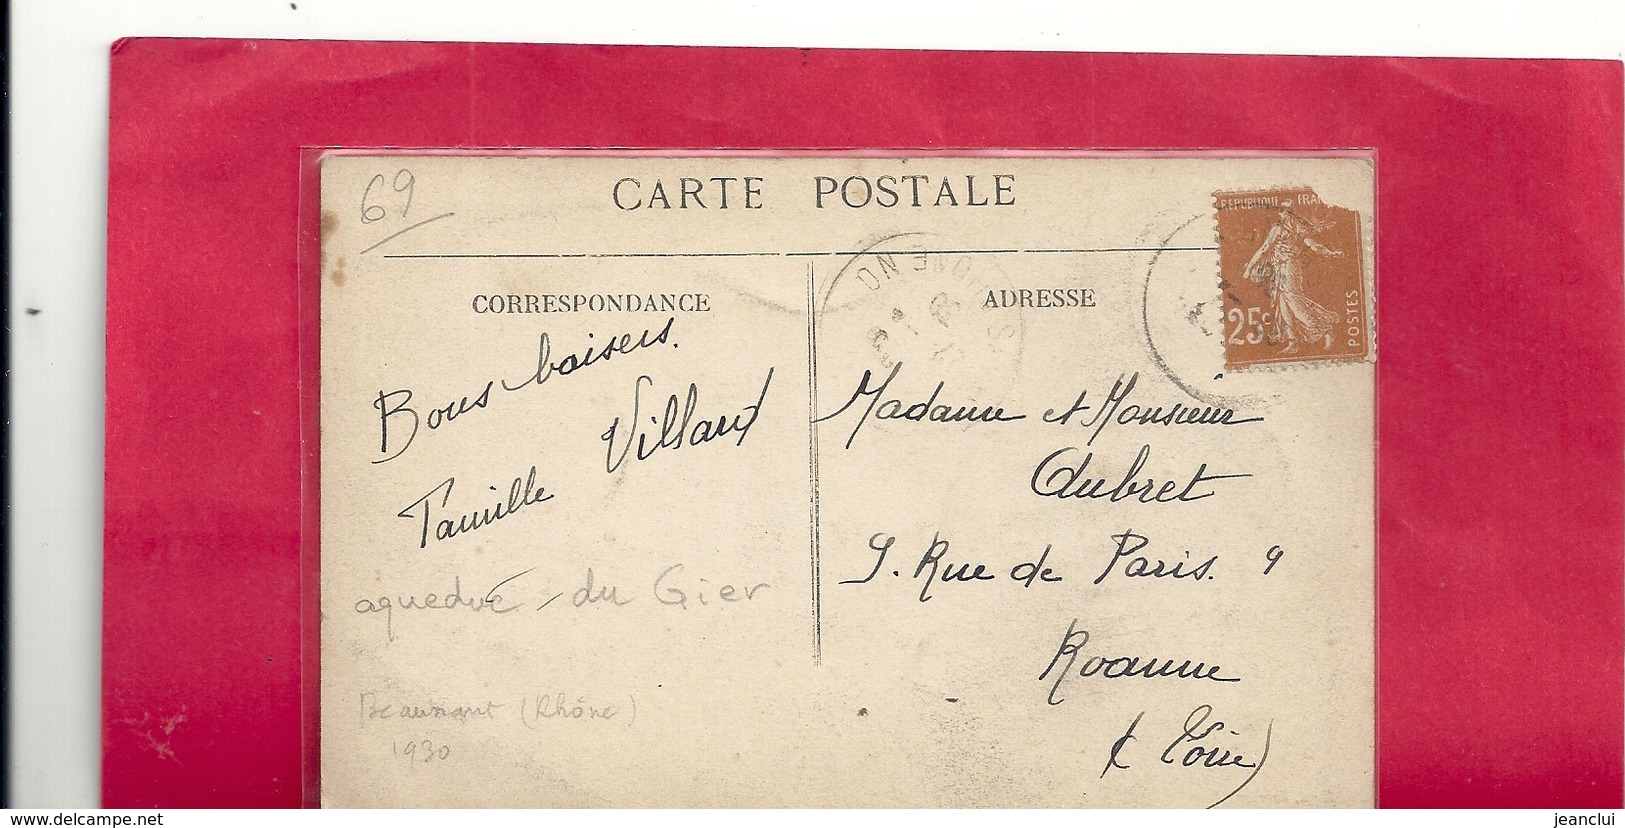 69
CARTE POSTALE
CORRESPONDANCE
Bons baisers.
Famille Villard
aqueduc du Gier
Beaunant (Rhône)
1930
ADRESSE
REPUBLIQUE FRA
25c
POSTES
Madame et Monsieur
Aubret
9. Rue de Paris. 9
Roanne
(Loire)
www.delcampe.net
jeanclui